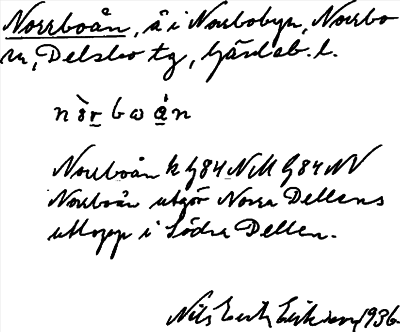 Norrboån, å i Norrbobyn, Norrbo
sn, Delsbo tg, Gävleb. l.
nòrbωån
Norrboån k G84 NM G84 NV
Norrboån utgör Norra Dellens
utlopp i Södra Dellen.
Nils Erik Eriksson, 1936.